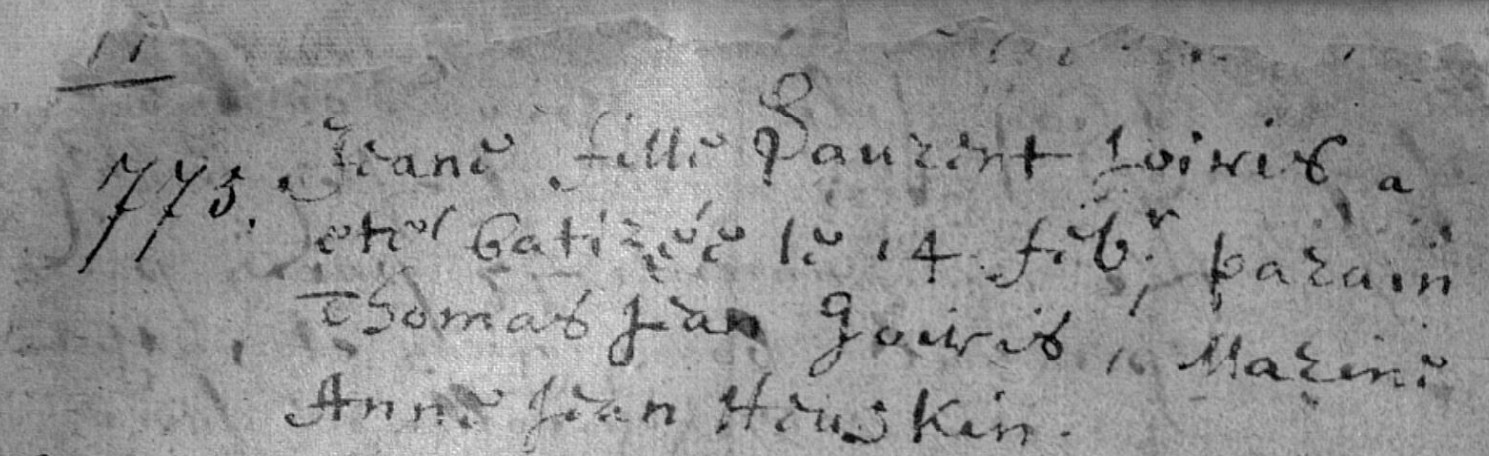 11
775. Jeane fille Laurent Goiris a
eté batizéé le 14 feb.r parain
Thomas Jean Goiris, Marine
Anne Jean Heuskin.